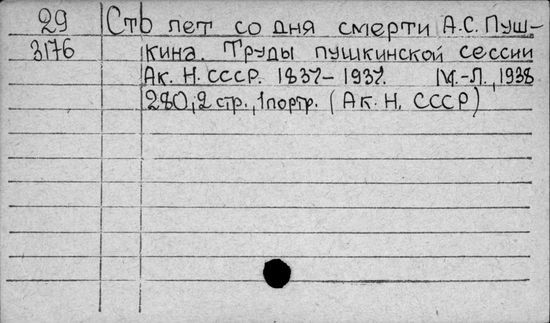 29 Сто лет со дня смерти А.С. Пуш-
3176 кина. Труды пушкинской сессии
Ак. Н. СССР. 1837-1937. М.-Л., 1938
280, 2 стр., 1 портр. (Ак. Н. СССР)